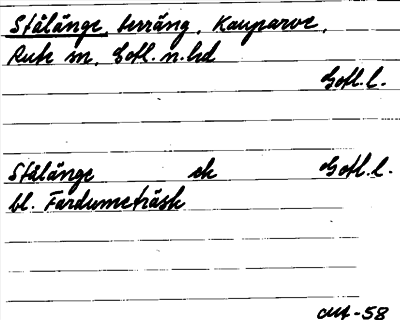 Stälänge, terräng, Kauparve,
Rute sn, Gotl. n. hd
Gotl. l.
Stälänge ek Gotl. l.
bl. Fardumeträsk
-58